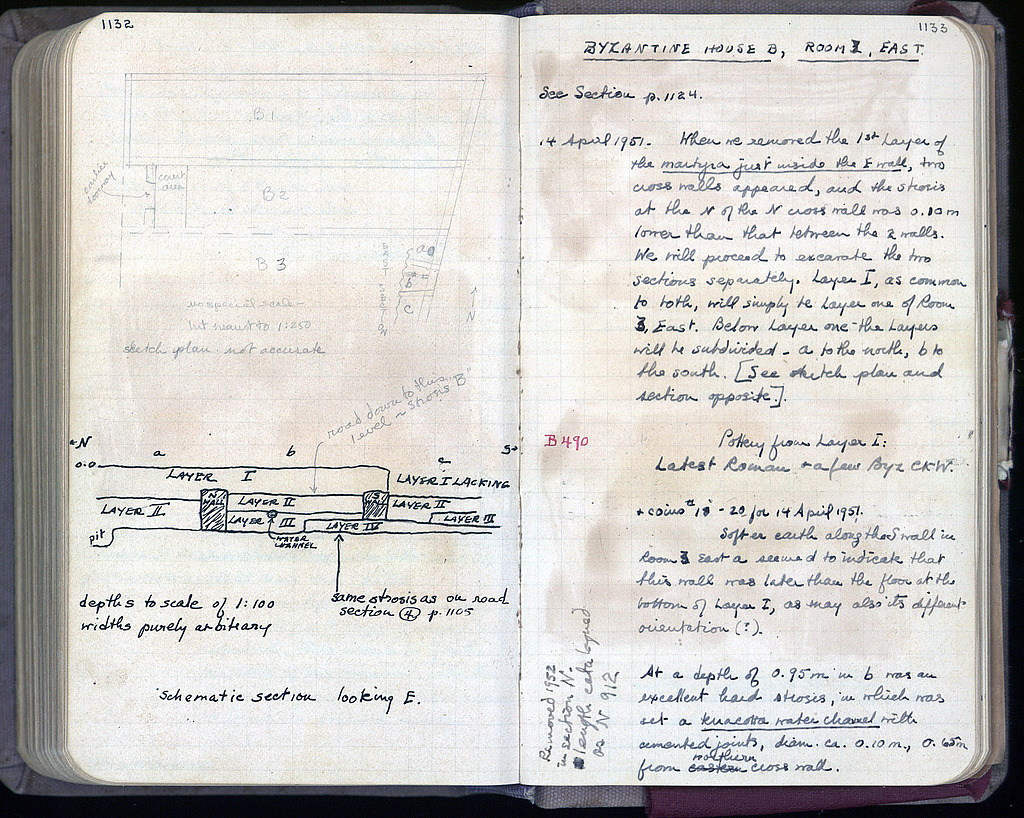 1132
B1
earlier doorway
court area
B2
B3
EAST SECTION
a
b
c
N
no special scale –
but meant to 1:250
sketch plan. not accurate
road down to this
level ~ strosis "B"
N
a
b
c
S
0.0
LAYER I
LAYER I LACKING
N WALL
S WALL
LAYER II
LAYER II
LAYER II
LAYER III
LAYER III
LAYER IV
WATER CHANNEL
pit
depths to scale of 1:100
widths purely arbitrary
same strosis as on road
section 4 p. 1105
Schematic section looking E.
1133
BYZANTINE HOUSE B, ROOM 3, EAST
See Section p. 1124.
14 April 1951. When we removed the 1st Layer of
the martyra just inside the E wall, two
cross walls appeared, and the strosis
at the N of the N cross wall was 0.10m
lower than that between the 2 walls.
We will proceed to excavate the two
sections separately. Layer I, as common
to both, will simply be Layer one of Room
3, East. Below Layer one the Layers
will be subdivided – a to the north, b to
the south. [See sketch plan and
section opposite].
B 490
Pottery from Layer I:
Latest Roman + a few Byz CKW.
+ coins # 18 – 20 for 14 April 1951.
Softer earth along the S wall in
Room 3 East a seemed to indicate that
this wall was later than the floor at the
bottom of Layer I, as may also its different
orientation (?).
At a depth of 0.95m in b was an
excellent hard strosis, in which was
set a terracotta water channel with
cemented joints, diam. ca. 0.10m., 0.65m
from northern cross wall.
Removed 1952
in section N.
length catalogued
as N 912